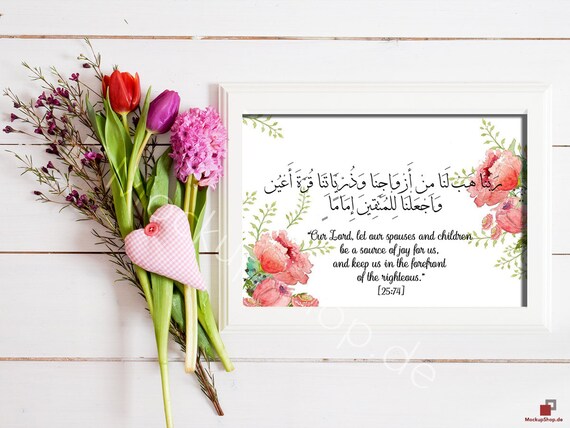 ربنا هب لنا من أزواجنا وذرياتنا قرة أعين
واجعلنا للمتقين إماما
"Our Lord, let our spouses and children
be a source of joy for us,
and keep us in the forefront
of the righteous."
[25:74]
MockupShop.de